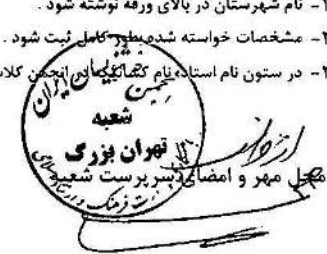 ۱- نام شهرستان در بالای ورقه نوشته شود .
۲- مشخصات خواسته شده بطور کامل ثبت شود .
۳- در ستون نام استاد، نام کسانیکه در انجمن کلاس
انجمن خوشنویسان ایران
شعبه
تهران بزرگ
محل مهر و امضای سرپرست شعبه